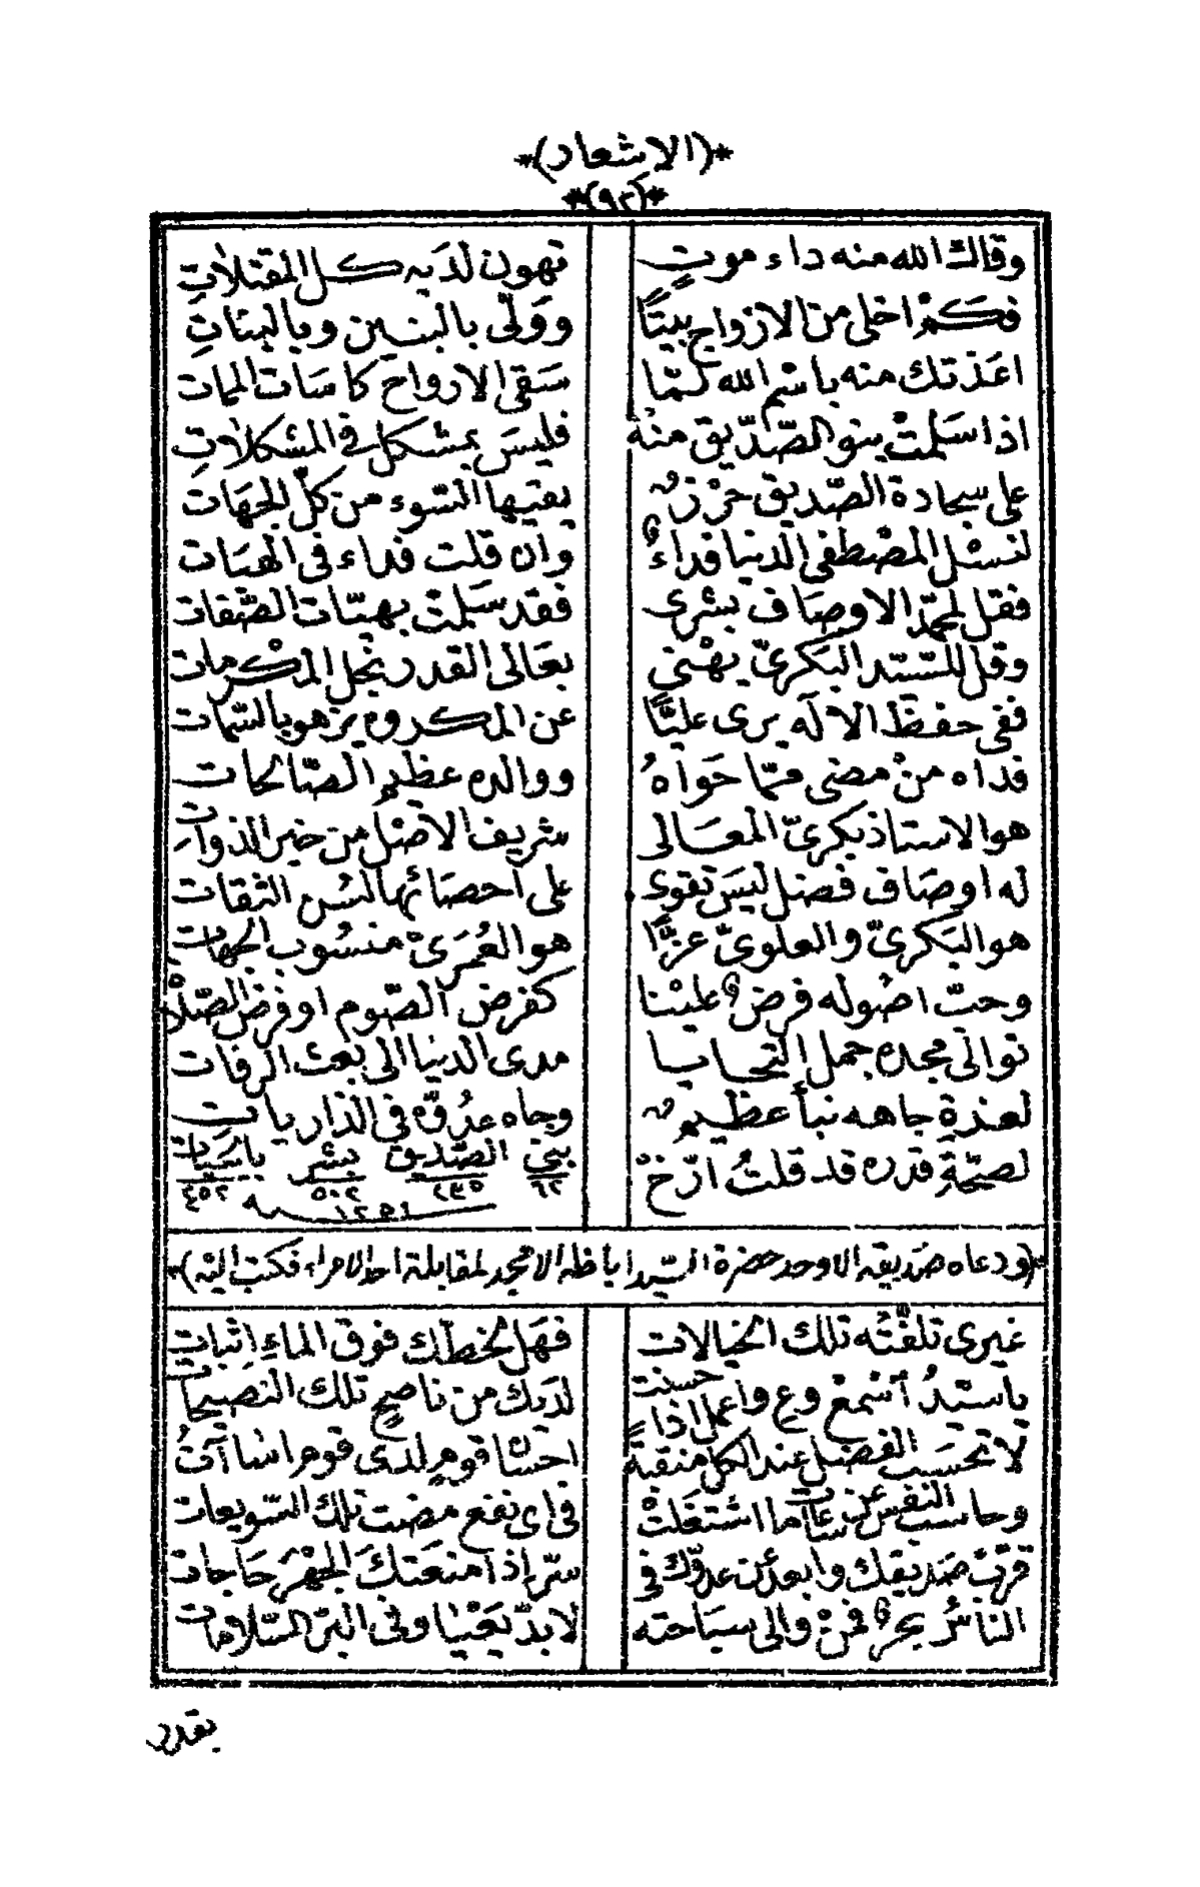 *(الاشعار)*
*(٩٢)*
وقاك الله منه داء موتٍ تهون لدَيه كل المقتلات
فكَمْ اخلى من الازواج بيتاً ووَلّى بالبنين وبالبناتِ
اعَذتك منه باسْم الله لمّا سَقى الارواح كاسَات الممات
اذا سَلمتْ بنو الصّدّيق منْهُ فليسَ بمشكل في المشكلاتِ
على سجادة الصّديق حرْزٌ يقيها السّوء من كلّ الجهَات
لنسْل المصْطفى الدنيا فداءٌ وان قلت فداء في الهبَات
فقل لمحمّد الاوصَاف بشرى فقد سَلمتْ بهيّات الصّفات
وقل للسّيد البَكريّ يهْنى بعَالى القدر نجل المكْرمات
ففى حفظ الالَه يرى عليّاً عن المكروه يزهو بالسّمات
فداه منْ مضى ممّا حَواهُ ووالده عظيم الصّالحات
هو الاستاذ بكرىّ المعَالى شريف الاصْل من خير الذوات
له اوصَاف فضل ليسَ تقوى على احصَائها السُن الثقات
هو البَكرىّ والعلوىّ عزّاً هو العُمَرىّ منسُوب الجهات
وحبّ اصُوله فرضٌ علينْا كفرض الصّوم او فرض الصّلاة
توالى مجده جمل التحايا مدى الدنيا الى بعث الرفات
لعندةِ جاهه نبأ عظيمٌ وجاه عدُوّه فى الذاريات
لصحّةِ قدره قد قلتُ ارّخْ بنى الصّديق بشر ياسيات
٦٢ ٢٣٥ ٥٠٢ ٤٥٢
سنه ١٢٥١
*(ودعاه صَديقه الاوحد حضرة السّيد اباظه الامجد لمقابلة احد الامراء فكتب اليْه)*
غيرى تلفّتُه تلك الخيالات فهَل لخطك فوق الماءِ اِثبات
ياسيّدُ اسْمعْ وعِ واعمل اذا حسنت لدَيك من ناصحٍ تلك النصيحات
لا تحسَب الفضل عند الكل منقبةً احسَاقومٍ لدى قوم اساآتُ
وحاسب النفس عن ساعات ما اشتغَلتْ فى اى نفع مضت تلك السّويعات
قرّبْ صَديقك وابعد عن عدوّك فى سرّ إذا منعَتكَ الجهْرَ حَاجات
الناسُ بحرٌ فمنْ والى سيَاحته لابدّ يَعْيَا وفى البّر السّلامات
بقدر